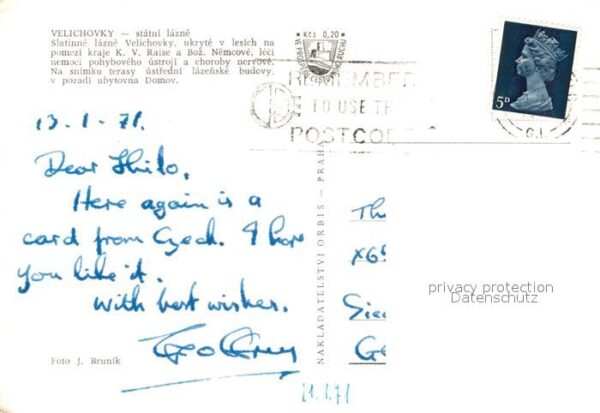 VELICHOVKY — státní lázně
Slatinné lázně Velichovky, ukryté v lesích na
pomezí kraje K. V. Raise a Bož. Němcové, léčí
nemoci pohybového ústrojí a choroby nervové.
Na snímku terasy ústřední lázeňské budovy,
v pozadí ubytovna Domov.
Kčs 0,20
REMEMBER
TO USE TH
POSTCOD
5D
13-1-71.
Dear
Here again is a
card from Czech. I hope
you like it.
With best wishes.
Geoffrey
Foto J. Bruník
NAKLADATELSTVÍ ORBIS — PRAHA
Th
X6
Sie
Ge
privacy protection
Datenschutz
21.1.71